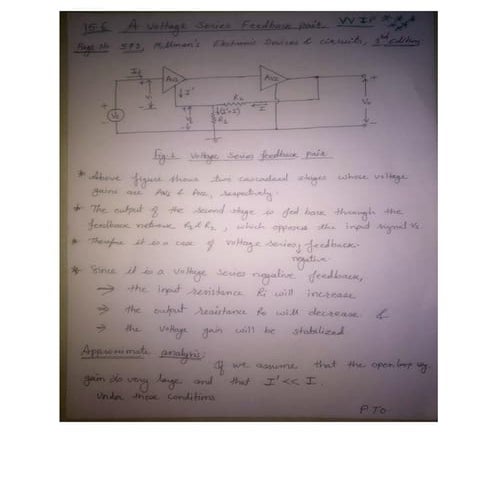 15.6 A Voltage Series Feedback pair VV IP
Page No 593, Millman's Electronic Devices & Circuits, 3rd edition
Fig.1. Voltage Series feedback pair
* Above figure shows two cascaded stages whose voltage
gains are AV1 & AV2, respectively.
* The output of the second stage is fed back through the
feedback network R1 & R2, which opposes the input signal Vs
* Therefore it is a case of voltage series feedback.
negative
* Since it is a voltage series negative feedback,
→ the input resistance Ri will increase
→ the output resistance Ro will decrease &
→ the voltage gain will be stabilized
Approximate analysis:
If we assume that the open loop
gain is very large and that I' << I.
Under these conditions
P.T.O